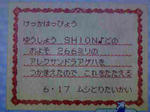 けっかはっぴょう
ゆうしょう SHIONどの
およそ 266ミリの
アレクサンドラアゲハを
つかまえたので これをたたえる
6・17 ムシとりたいかい